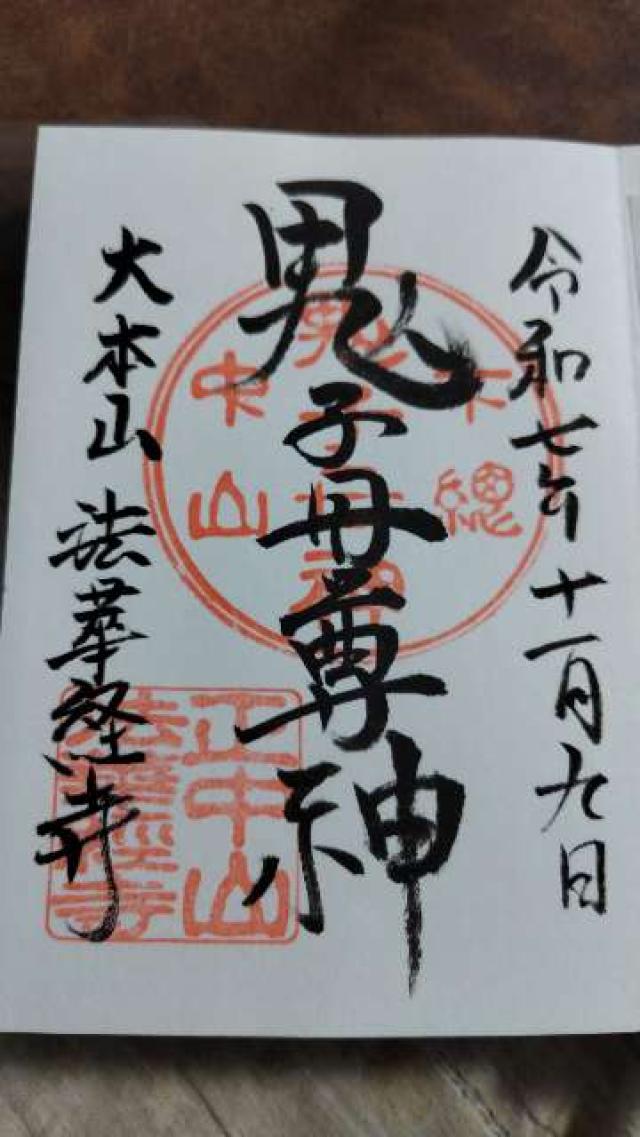 令和七年十一月九日
鬼子母尊神
大本山 法華経寺
下総
中山
正中山
法華経寺